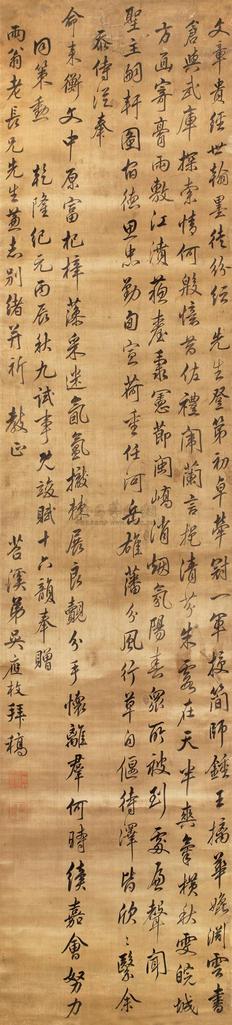 文章貴經世翰墨徒紛紜先生登第初卓犖冠一軍授簡師鍾王摛華媲淵雲書
倉與武庫探索情何殷憶昔佐禮闈蘭言挹清芬朱霞在天半爽氣橫秋雯皖城
方画寄膏雨敷江濆蘓臺肅憲節閩嶠消烟氛陽春衆所被到處虚聲聞
聖主嗣軒圖宿德思忠勤旬宣荷重任河岳雄藩分風行草自偃待澤皆欣欣繄余
忝侍從奉
命来衡文中原富杞梓藻采迷氤氳撤棘展良覿分手懷離羣何時續嘉會努力
同策勲
乾隆紀元丙辰秋九試事既竣賦十六韻奉贈
雨翁老長兄先生並志別緒并祈教正
苕溪弟吳應枚拜稿